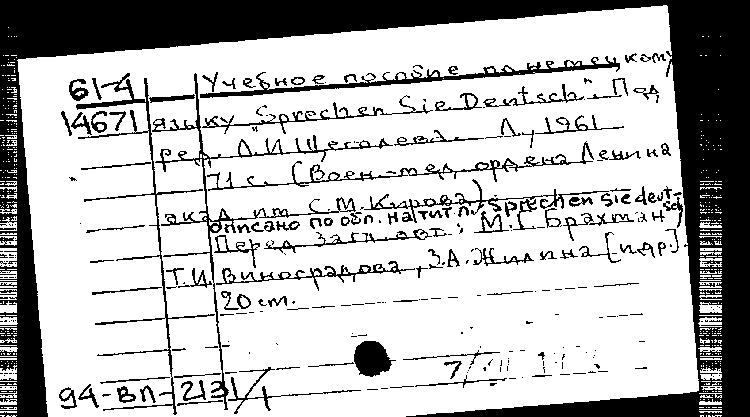 61-4 Учебное пособие по немецкому
14671 языку "Sprechen Sie Deutsch". Под
ред. Л.И Щеголева. Л., 1961
71 с. (Воен-мед. ордена Ленина
акад им С.М.Кирова)
описано по обл. На тит. л.: Sprechen sie deutsch
Перед загл. авт.: М.Г. Брахман
Т.И. Виноградова, З.А. Жилина [и др].
20 cm.
94-вп-2131/1